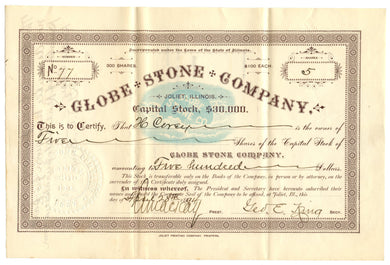 Incorporated under the Laws of the State of Illinois.
NUMBER
No 77
300 SHARES.
$100 EACH.
SHARES
5
GLOBE STONE COMPANY,
JOLIET, ILLINOIS.
Capital Stock, $30,000.
This is to Certify, That H Corey is the owner of
Five Shares of the Capital Stock of
GLOBE STONE COMPANY,
representing Five hundred Dollars.
This Stock is transferable only on the Books of the Company, in person or by attorney, on the
surrender of the Certificate duly assigned.
In witness whereof, The President and Secretary have hereunto subscribed their
names and the Seal of the Company to be affixed, at Joliet, Ill., this
day of April
PREST.
Geo. E. King SECY.
JOLIET PRINTING COMPANY, PRINTERS.